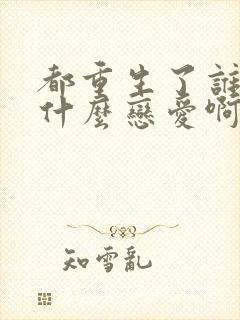 都重生了誰
什麼戀愛啊
知雪亂